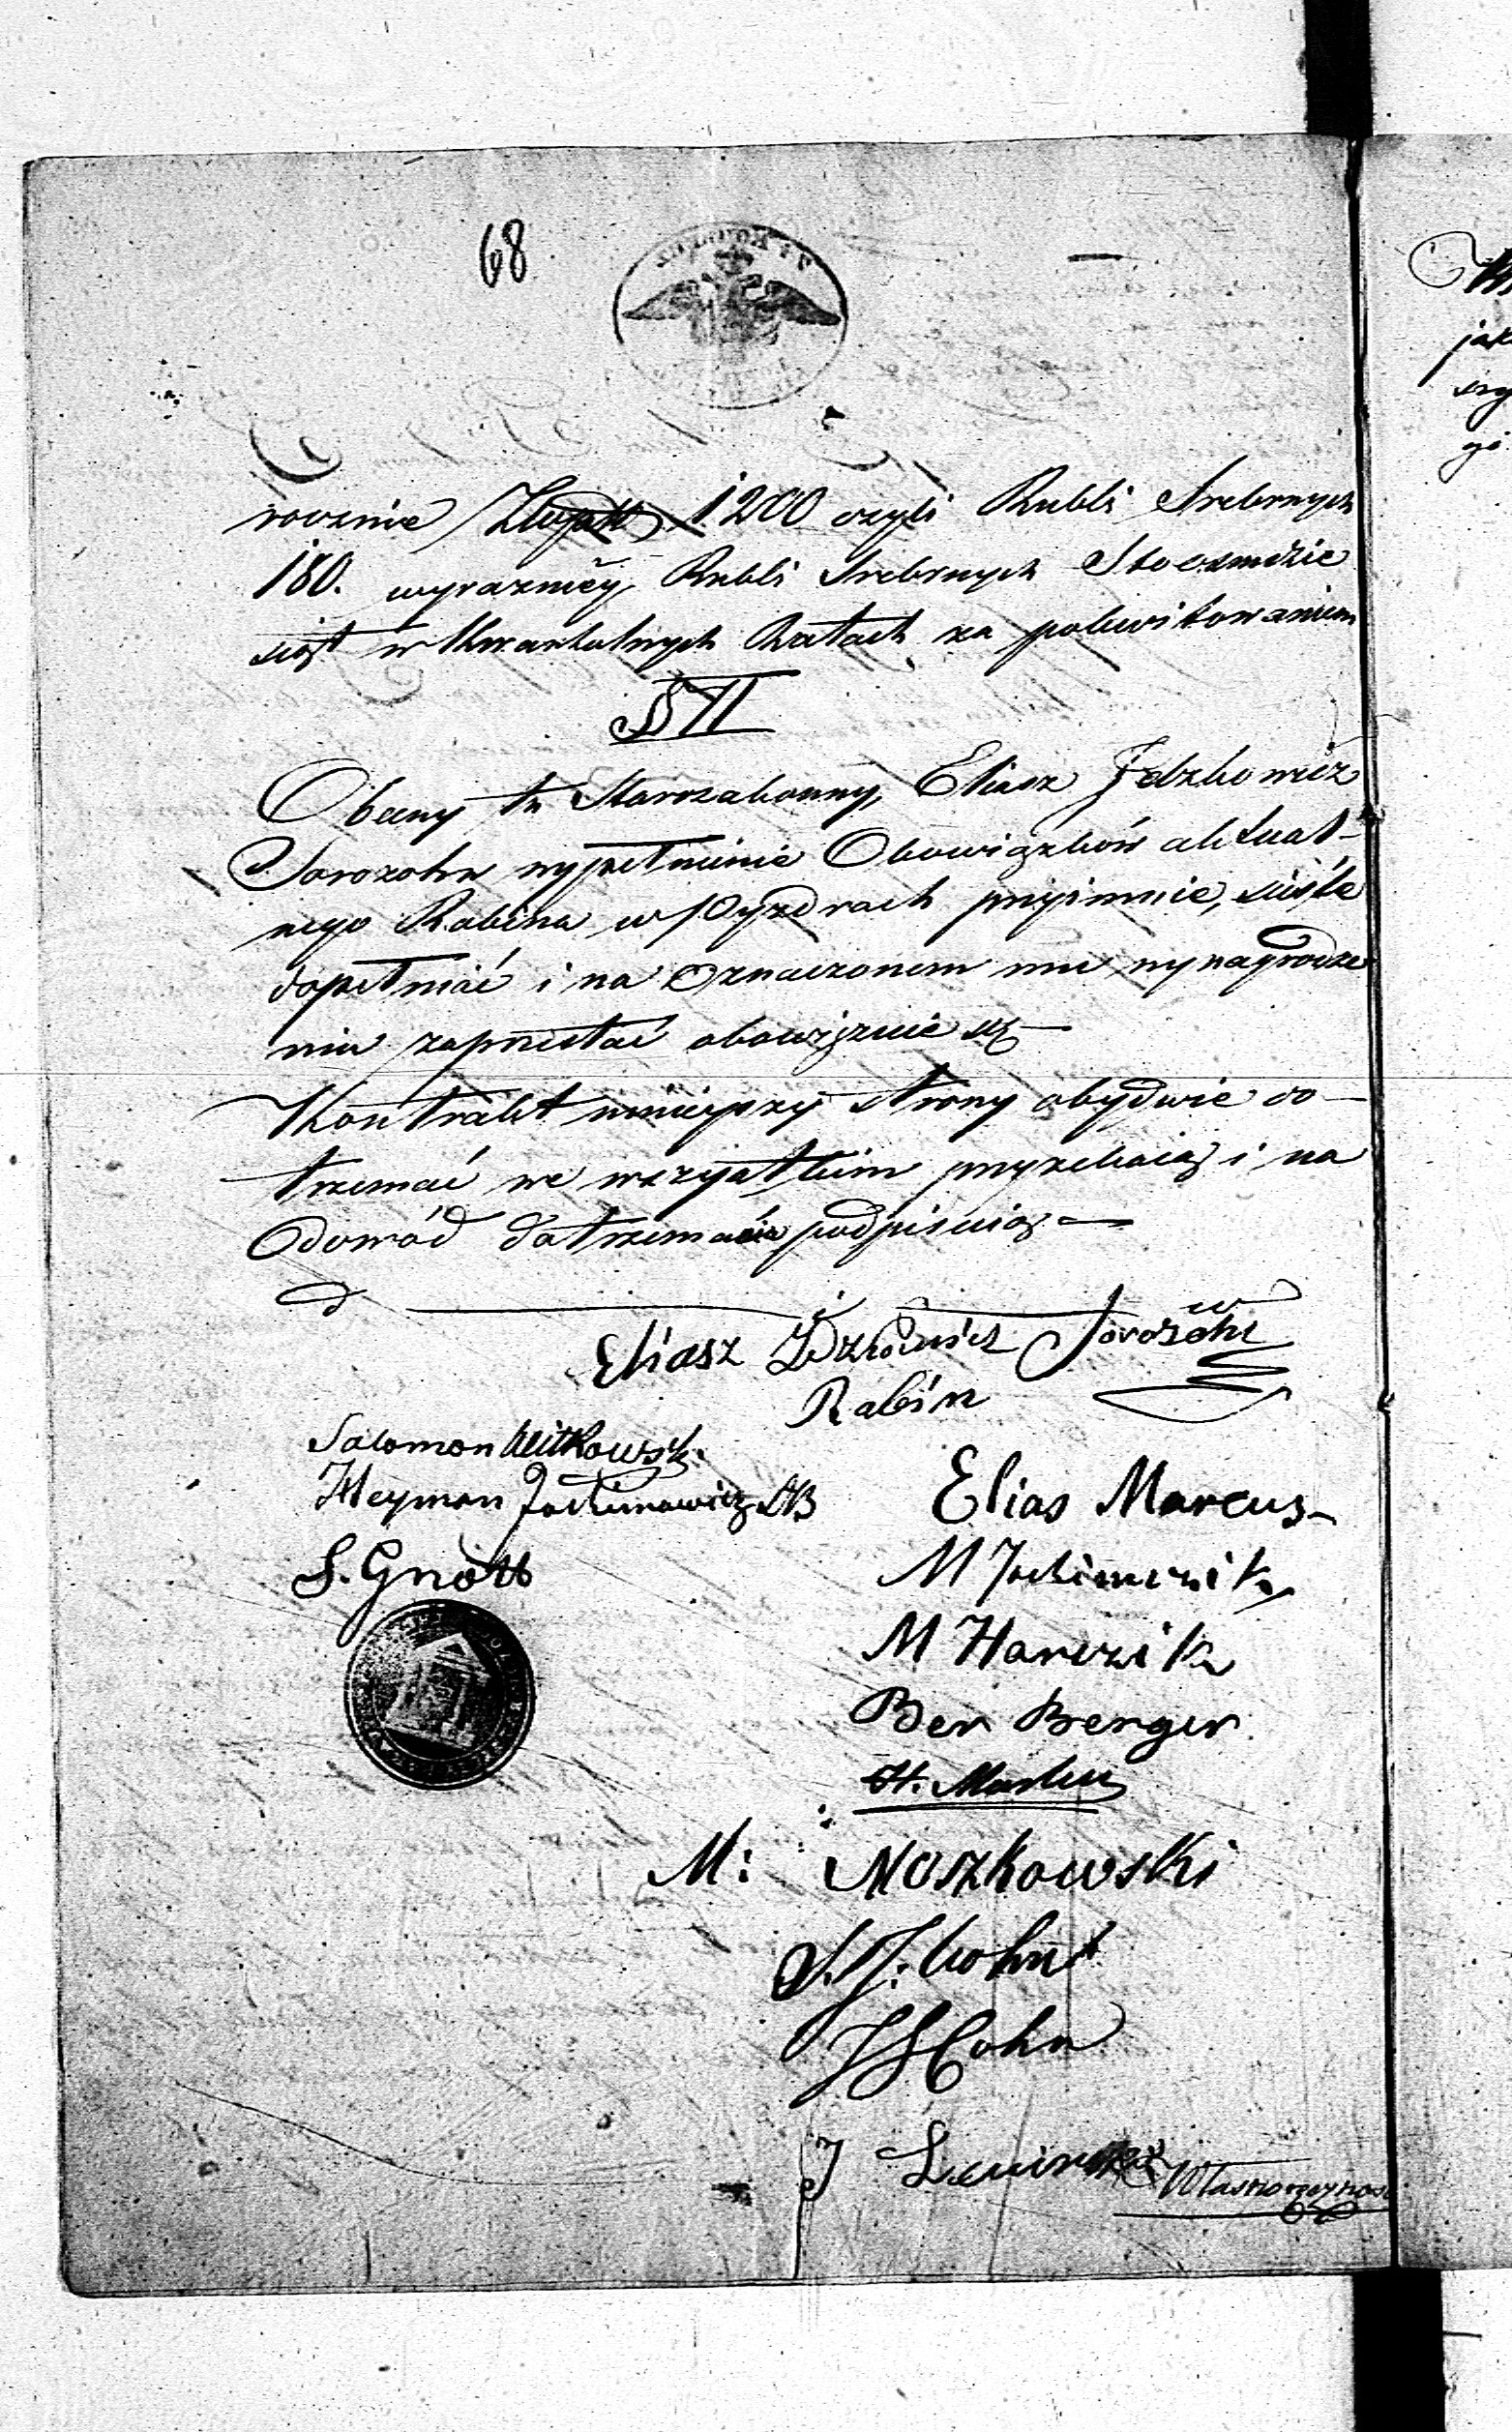 68
rocznie Złotych 1200 czyli Rubli Srebrnych
180. wyrazniey Rubli Srebrnych Stoosmdzie
siąt w Kwartalnych Ratach za pokwitowaniem
§ II
Obecny tu Starozakonny, Eliasz
Sorozohn wypełnienie Obowiązków aktual-
nego Rabina w Pyzdrach przyimuie, ściśle
dopełniać i na oznaczonem mu wynagrodze
niu zaprzestać obowiązuie się
Kontrakt nınieyszy strony obydwie do-
trzymać we wszystkim przyrzekaią i na
dowód dotrzymania podpisuią
Eliasz
Rabin
Salomon Witkowski
Heyman
S. Gnott
Elias Marcus
M
M Harczik
Ber Berger
H.
M: Moszkowski
S. J. Cohn
J S Cohn
J
Własnoręcznosc